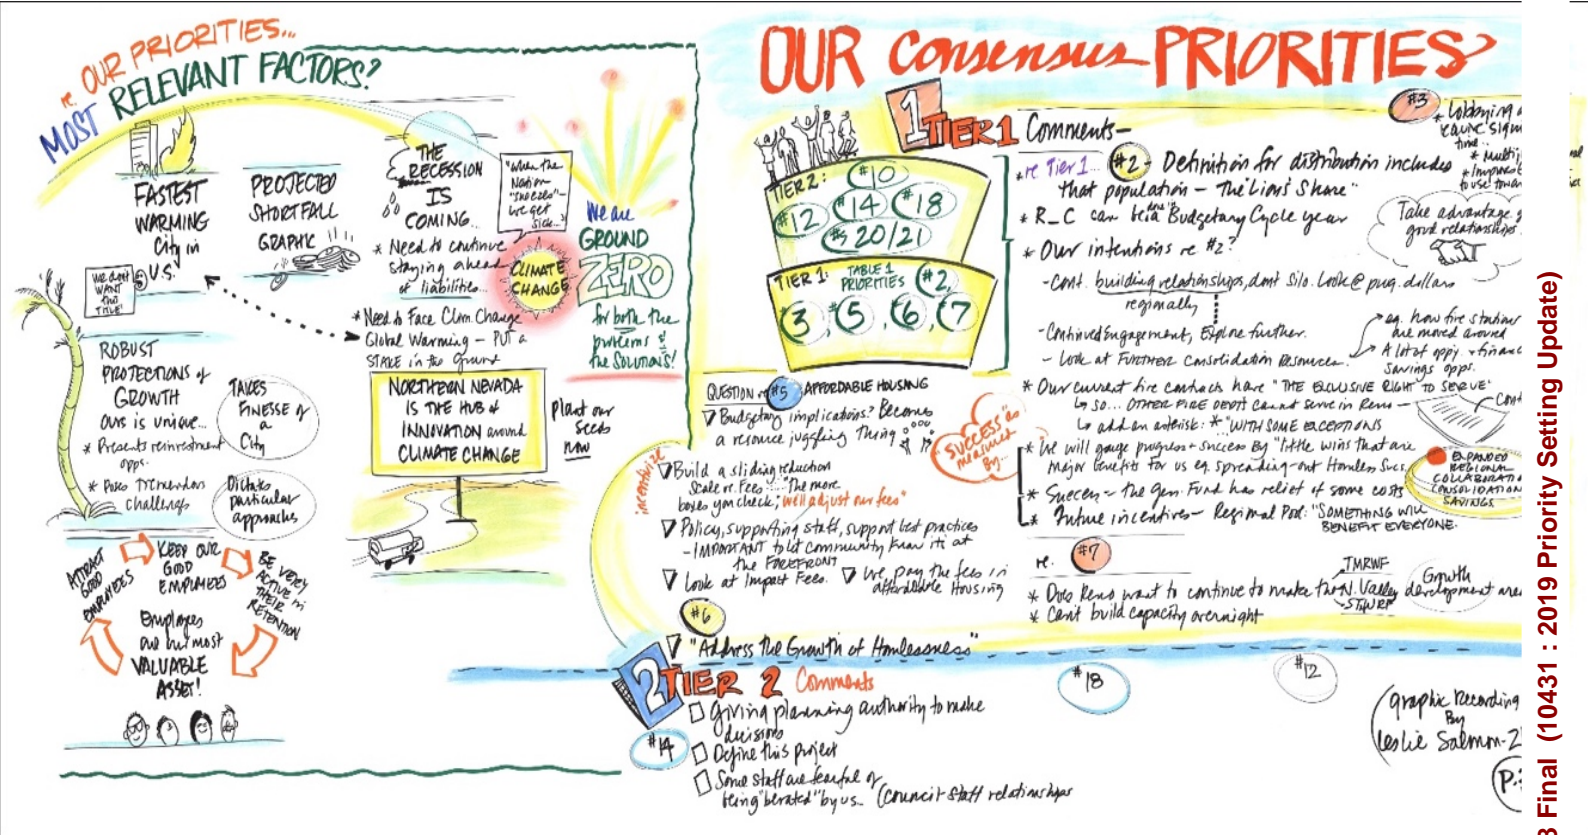 re. OUR PRIORITIES...
MOST RELEVANT FACTORS?
FASTEST
WARMING
City in
U.S.
"We don't
WANT
this
TITLE"
PROJECTED
SHORTFALL
GRAPHIC
THE
RECESSION
IS
COMING...
* Need to continue
staying ahead
of liabilities...
"when the
Nation
"sneezes"-
we get
sick..."
CLIMATE
CHANGE
We are
GROUND
ZERO
for both the
problems &
the SOLUTIONS!
* Need to Face Clim. Change
Global Warming - PUT a
STAKE in the Ground
ROBUST
PROJECTIONS of
GROWTH
OURS is UNIQUE...
* Presents reinvestment
opps.
* Poses Tremendous
challenges
TAKES
FINESSE of
a
City
Dictates
particular
approaches
NORTHERN NEVADA
IS THE HUB of
INNOVATION around
CLIMATE CHANGE
plant our
seeds
now
ATTRACT
GOOD
EMPLOYEES
KEEP OUR
GOOD
EMPLOYEES
BE VERY
ACTIVE in
THEIR
RETENTION
Employees
are our most
VALUABLE
ASSET!
OUR Consensus PRIORITIES
TIER 2:
#10
#12
#14
#18
#s 20/21
TIER 1:
TABLE 1
PRIORITIES
#2,
#3, #5, #6, #7
1 TIER 1 Comments-
*re Tier 1...
#2 - Definition for distribution includes
that population - The "Lion's Share"
* R_C can be in a Budgetary Cycle year
* Our intentions re #2?
- Cont. building relationships, dont silo. Look @ pug. dollars
regionally
- Continued Engagement, Explore further.
- Look at FURTHER Consolidation Resources
eg. how fire stations
are moved around
A lot of oppy. + financ
Savings opps.
* Our current fire contracts have "THE EXCLUSIVE RIGHT TO SERVE"
so... OTHER FIRE DEPTS cannot serve in Reno-
add an asterisk: * "WITH SOME EXCEPTIONS
Cont
* We will gauge progress + success By "little wins that are
Major benefits for us eg. spreading-out Homeless Svcs.
* Success - the Gen. Fund has relief of some costs
* Future incentives - Regional Pool: "SOMETHING WILL
BENEFIT EVERYONE.
EXPANDED
REGIONAL
COLLABORATIO
CONSOLIDATION
SAVINGS
#3
* Lobbying
time..
* Multi
* Improve
to use towar
Take advantage
good relationships.
QUESTION re #5 AFFORDABLE HOUSING
Budgetary implications? Becomes
a resource juggling Thing
"SUCCESS" as
measured
By...
incentivize
Build a sliding reduction
Scale re. Fees... "The more
boxes you check, we'll adjust our fees"
Policy, supporting staff, support best practices
- IMPORTANT to let community know it's at
the FOREFRONT
Look at Impact Fees.
We pay the fees in
affordable Housing
#6
"Address the Growth of Homelessness"
re. #7
* Does Reno want to continue to make the N. Valley development area
TMRWF
STWRP
Growth
* Can't build capacity overnight
2 TIER 2 Comments
#14
Giving planning authority to make
decisions
Define this project
Some staff are fearful of
being "berated" by us... (council staff relationships
#18
#12
(graphic Recording
By
Leslie Salmon-Z
P.
B Final (10431 : 2019 Priority Setting Update)